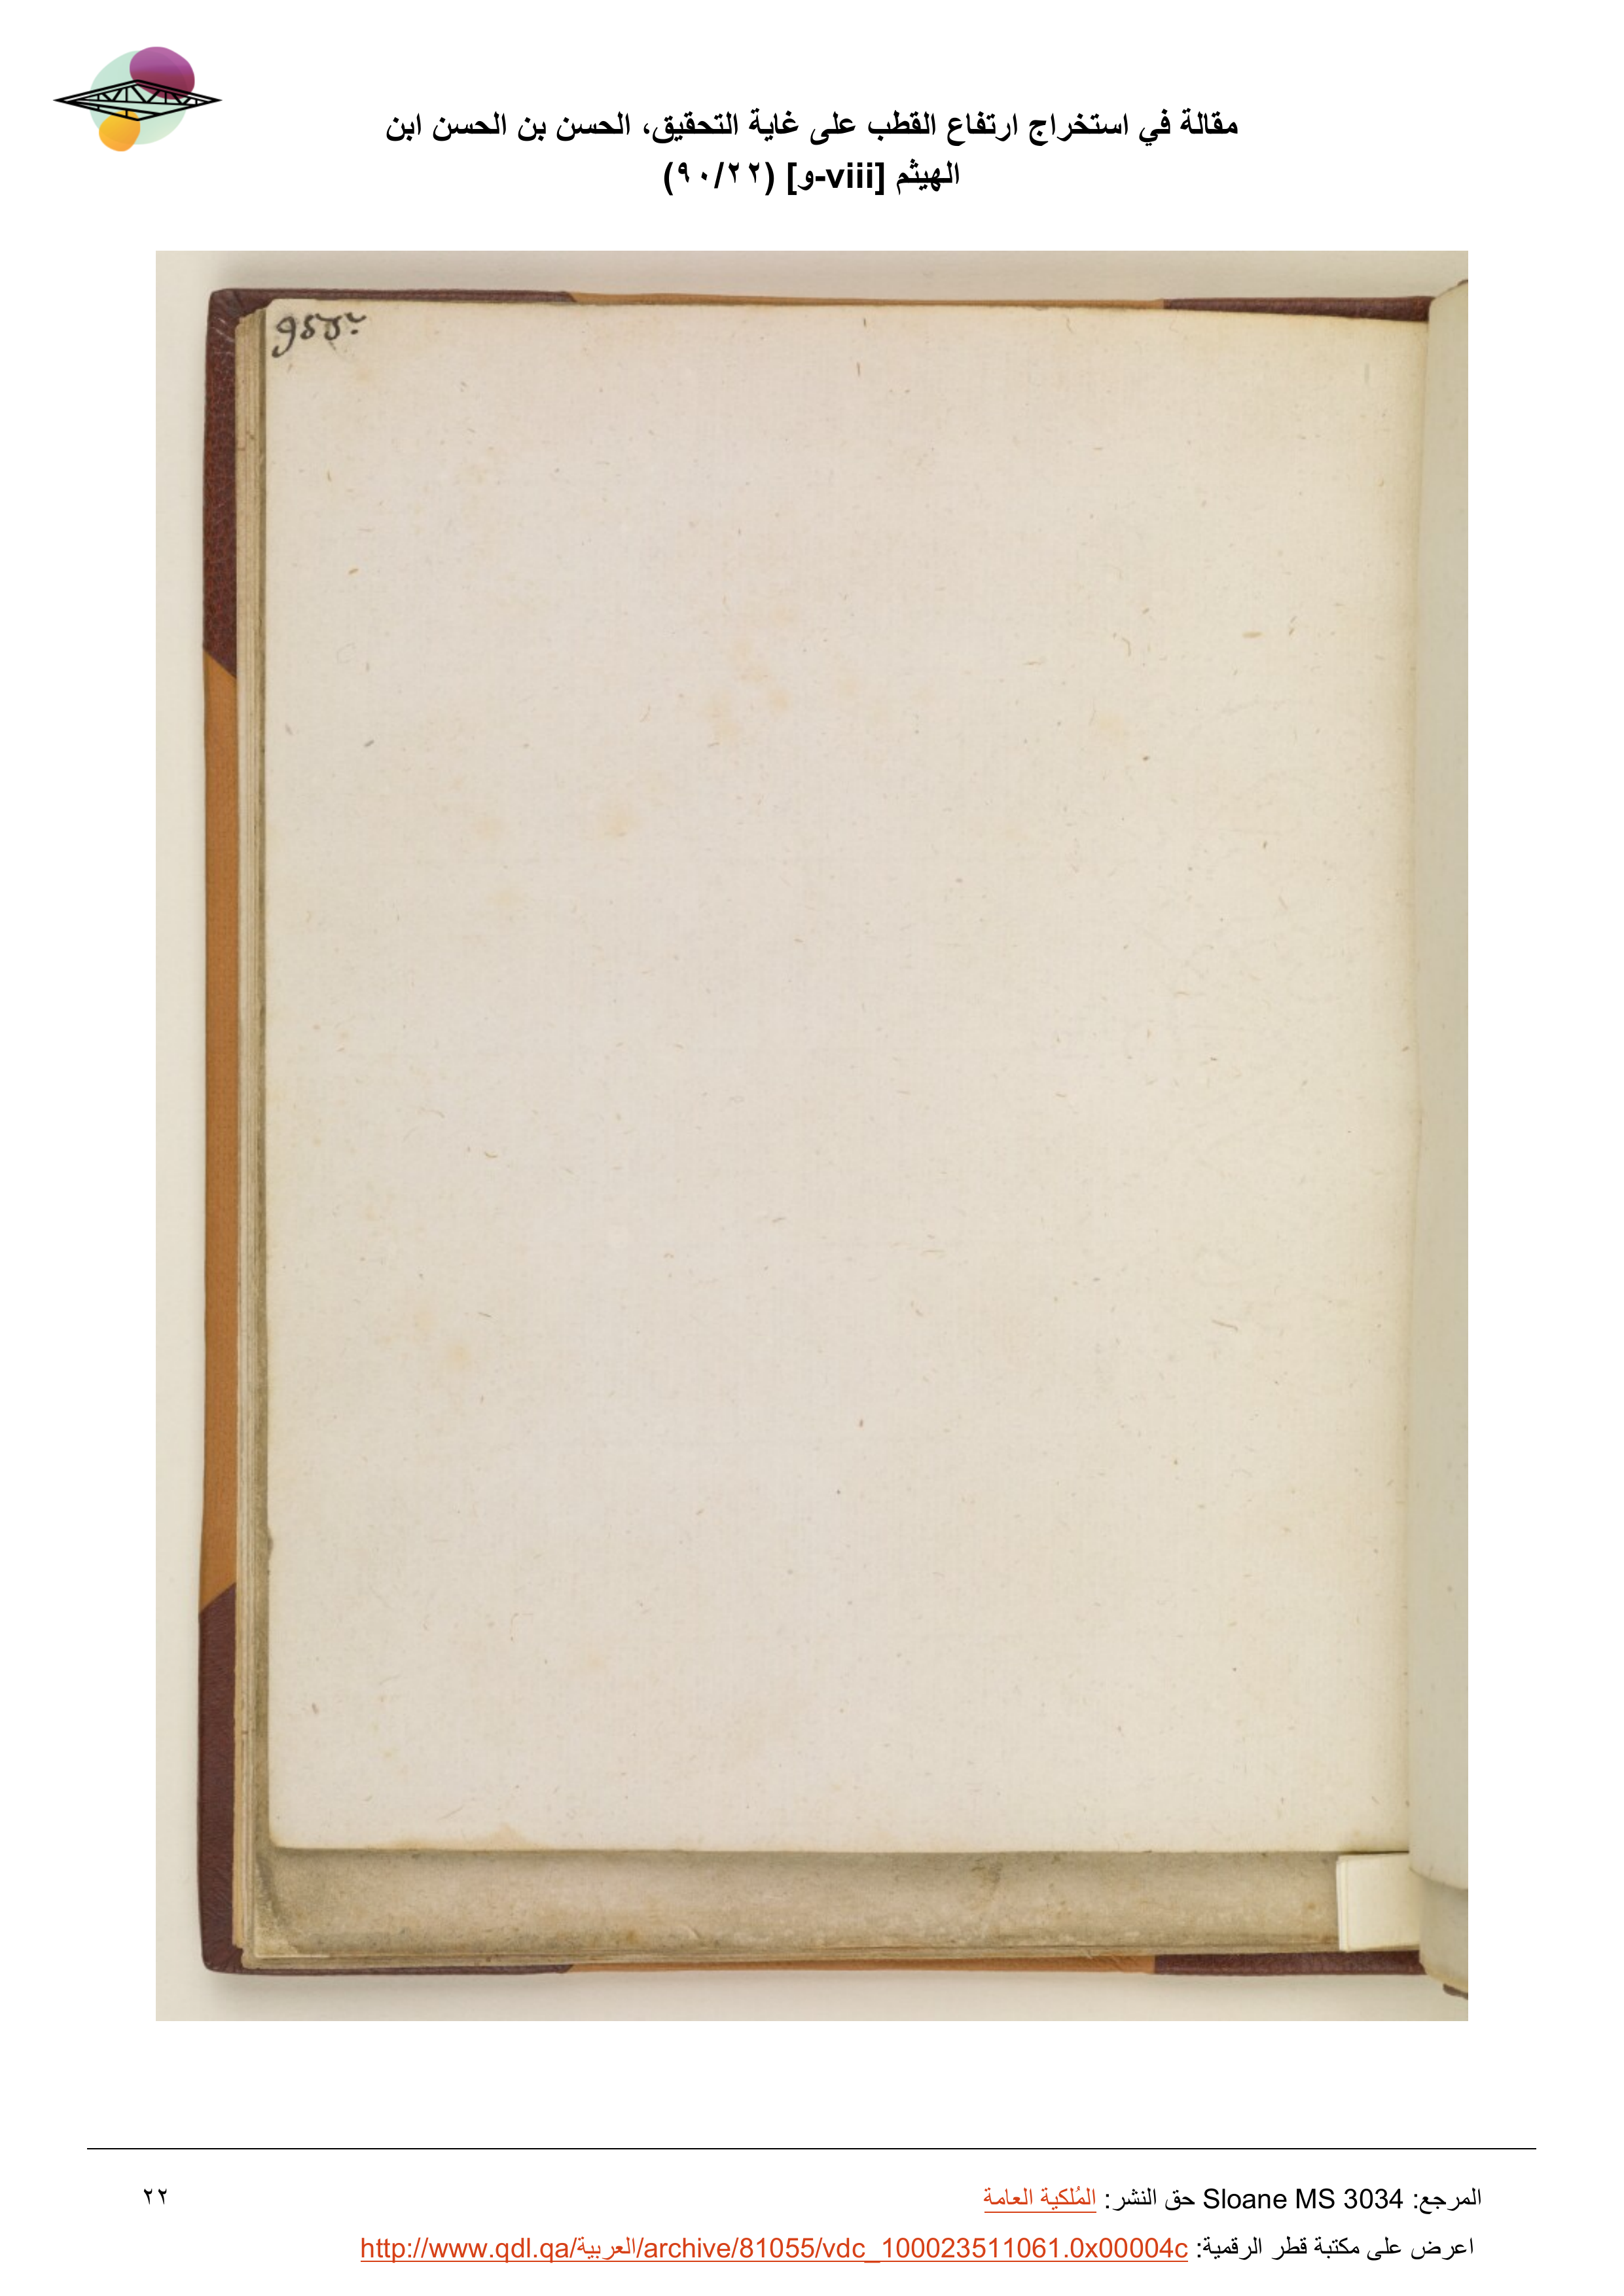 مقالة في استخراج ارتفاع القطب على غاية التحقيق، الحسن بن الحسن ابن
الهيثم [viii-و] (٩٠/٢٢)
المرجع: Sloane MS 3034 حق النشر: المُلكية العامة
٢٢
اعرض على مكتبة قطر الرقمية: http://www.qdl.qa/العربية/archive/81055/vdc_100023511061.0x00004c